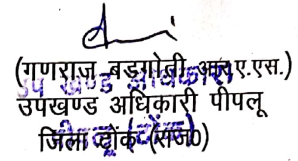 (गणराज बड़गोती आर.ए.एस.)
उपखण्ड अधिकारी पीपलू
जिला टोंक (राज0)